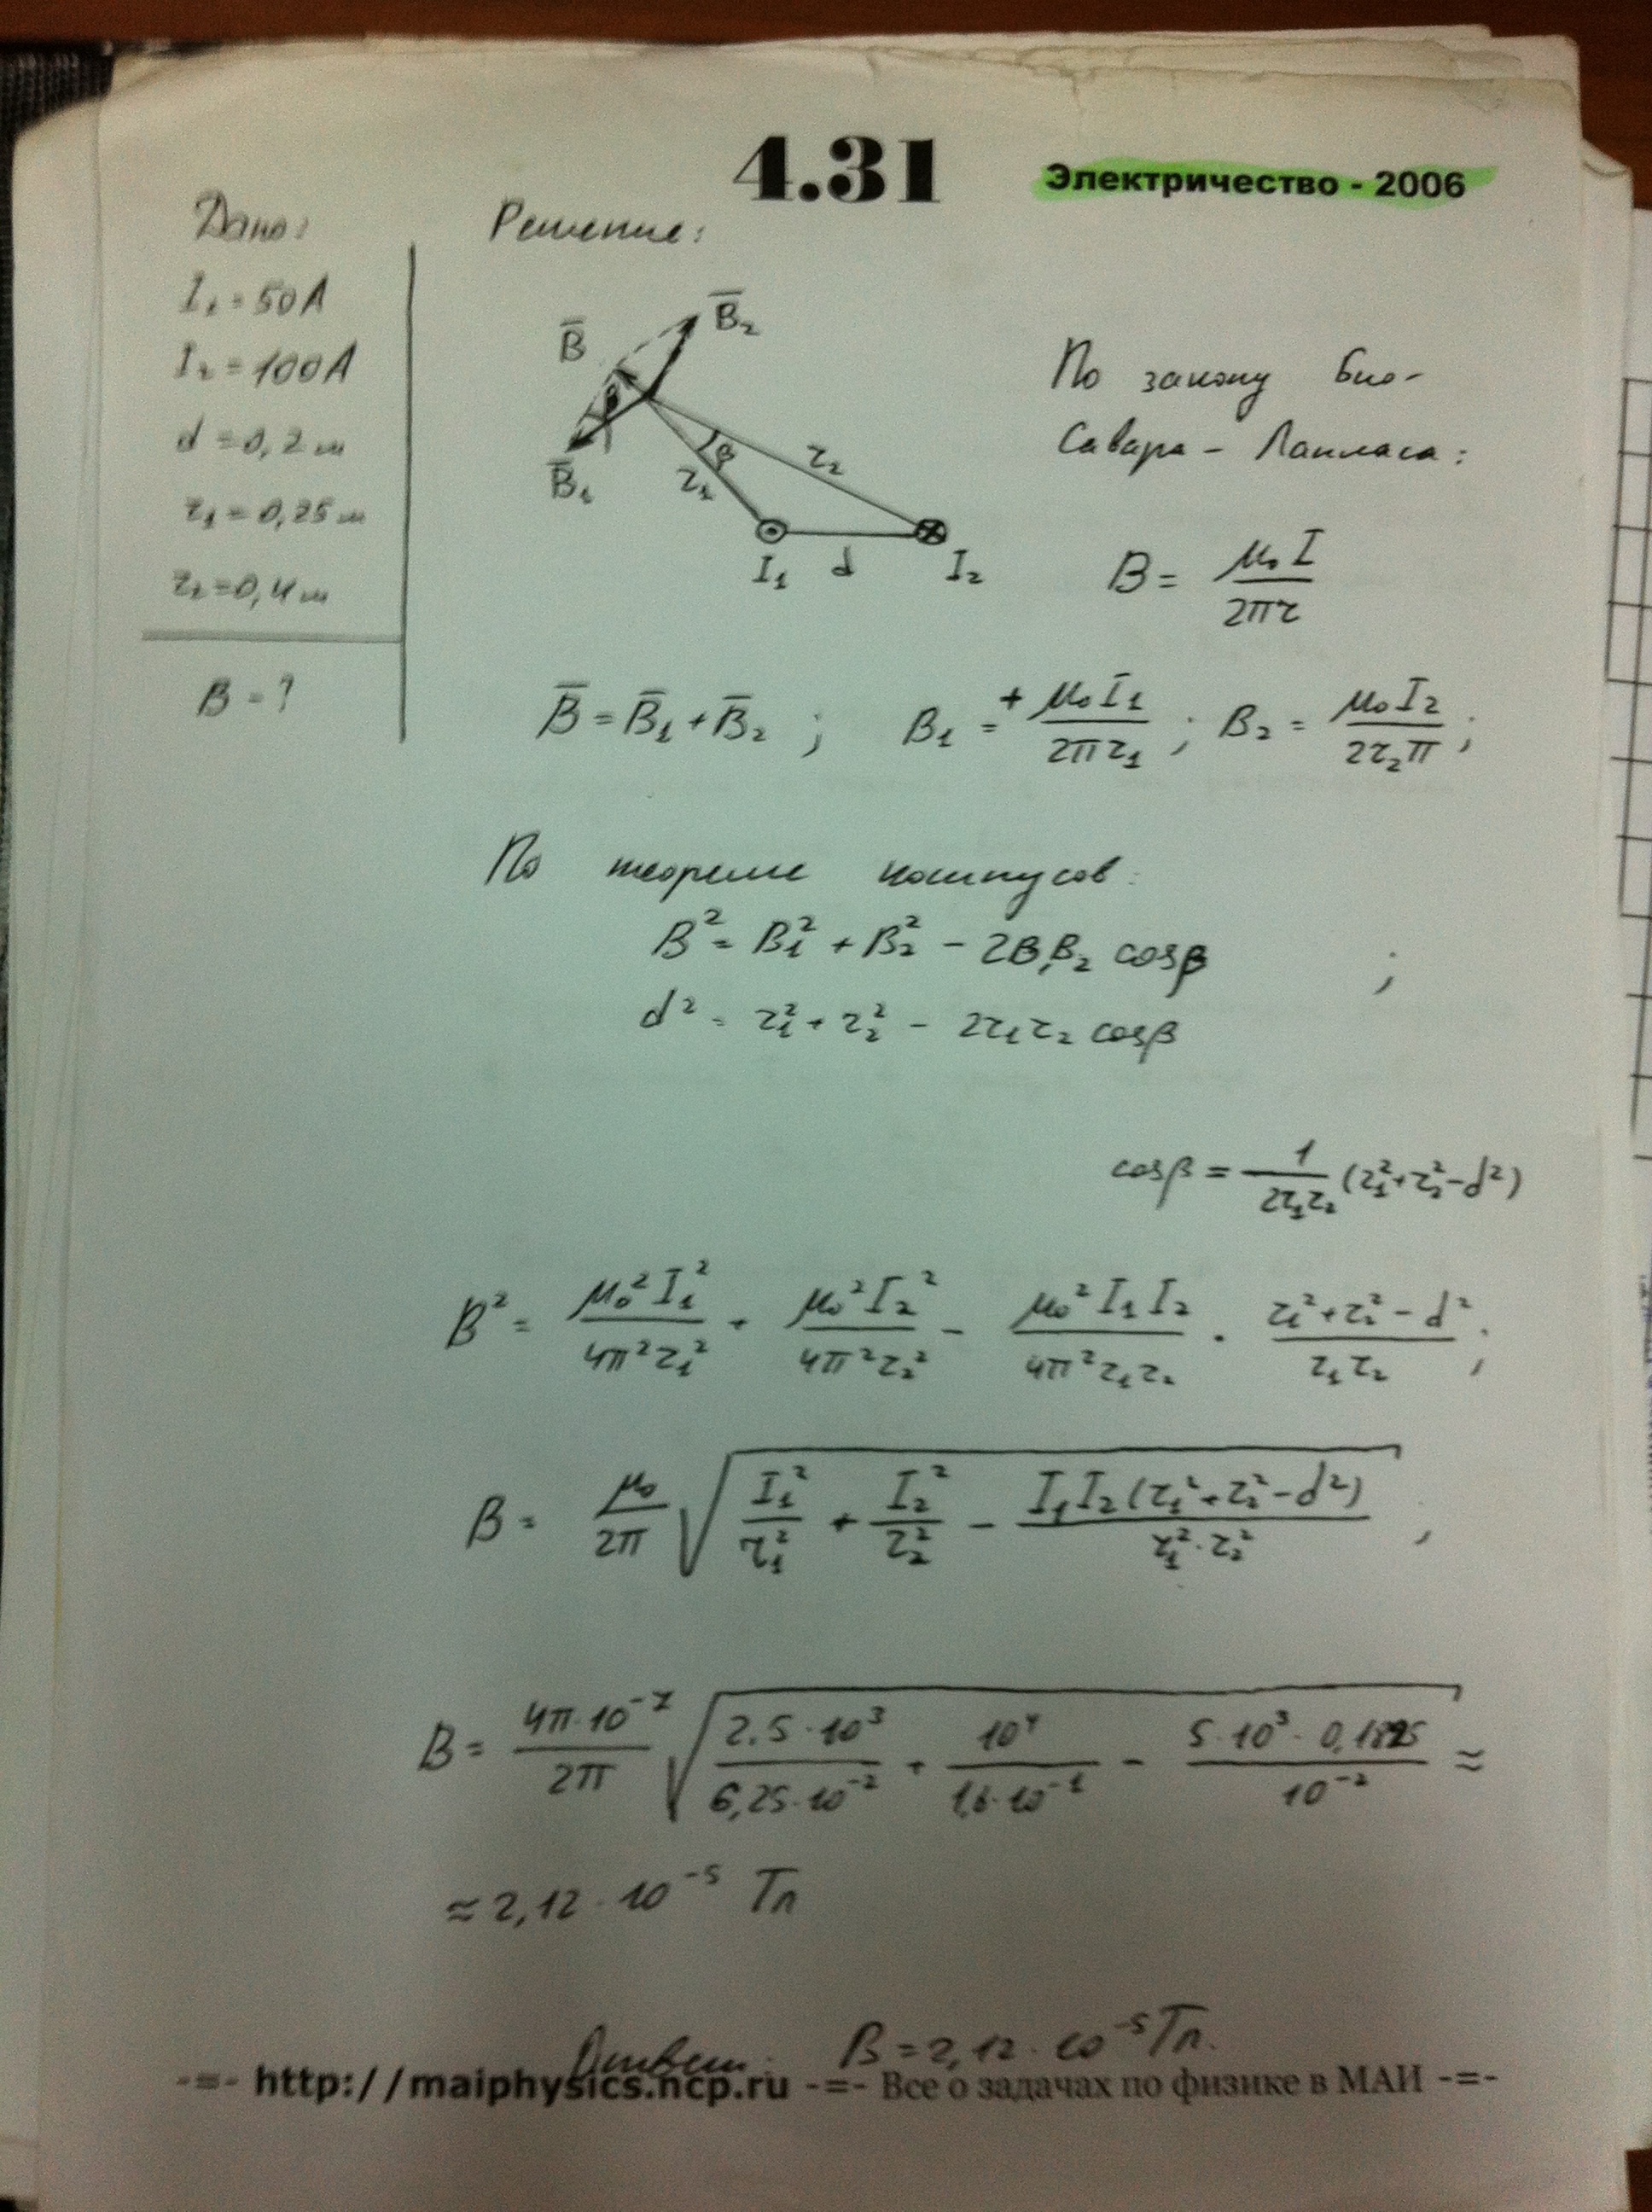 4.31
Электричество - 2006
Дано:
I₁ = 50 А
I₂ = 100 А
d = 0,2 м
r₁ = 0,25 м
r₂ = 0,4 м
B = ?
Решение:
B̅
B̅₂
B̅₁
β
β
r₁
r₂
I₁
d
I₂
По закону Био-
Савара - Лапласа:
B = μ₀I / 2πr
B̅ = B̅₁ + B̅₂ ; B₁ = + μ₀I₁ / 2πr₁ ; B₂ = μ₀I₂ / 2r₂π ;
По теореме косинусов:
B² = B₁² + B₂² - 2B₁B₂ cosβ ;
d² = r₁² + r₂² - 2r₁r₂ cosβ
cosβ = 1 / 2r₁r₂ (r₁² + r₂² - d²)
B² = μ₀²I₁² / 4π²r₁² + μ₀²I₂² / 4π²r₂² - μ₀²I₁I₂ / 4π²r₁r₂ · r₁² + r₂² - d² / r₁r₂ ;
B = μ₀ / 2π √ I₁² / r₁² + I₂² / r₂² - I₁I₂(r₁² + r₂² - d²) / r₁² · r₂² ,
B = 4π·10⁻⁷ / 2π √ 2.5·10³ / 6,25·10⁻² + 10⁴ / 1,6·10⁻¹ - 5·10³ · 0,1825 / 10⁻² ≈
≈ 2,12 · 10⁻⁵ Тл
Ответ: B = 2,12 · 10⁻⁵ Тл.
-=- http://maiphysics.ncp.ru -=- Все о задачах по физике в МАИ -=-